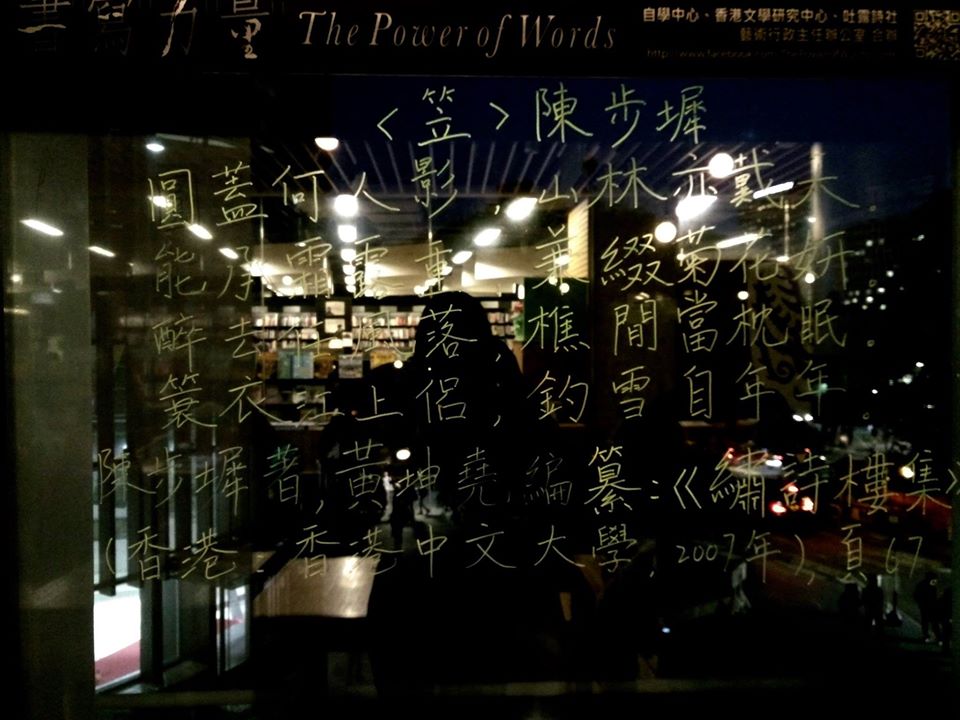 書寫力量 The Power of Words
自學中心、香港文學研究中心、吐露詩社
藝術行政主任辦公室 合辦
〈笠〉陳步墀
圓蓋何人影,山林亦戴天。
能承霜露重,兼綴菊花妍。
醉去風落,樵閒當枕眠。
簑衣江上侶,釣雪自年年。
陳步墀著,黃坤堯編纂:《繡詩樓集》
(香港:香港中文大學,2007年),頁67。